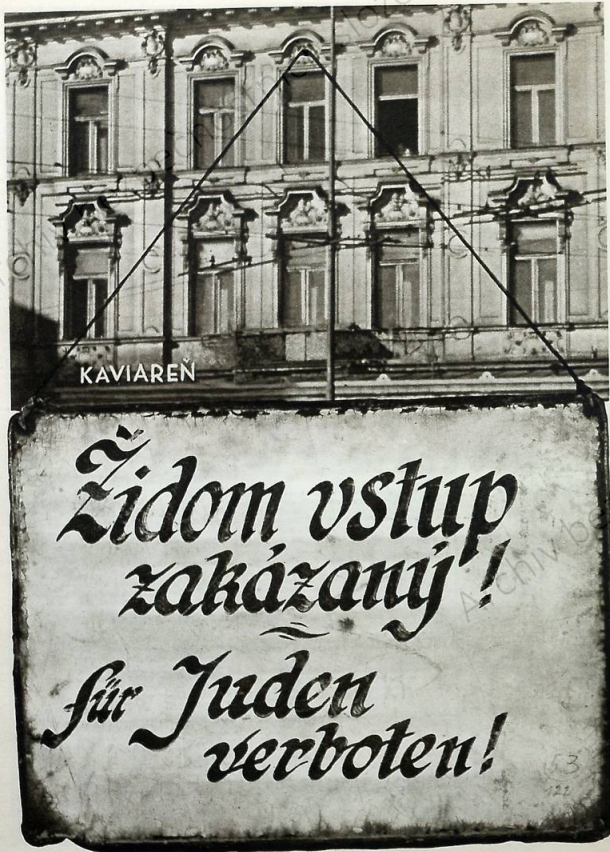 KAVIAREŇ
Židom vstup
zakázaný!
für Juden
verboten!
53
122